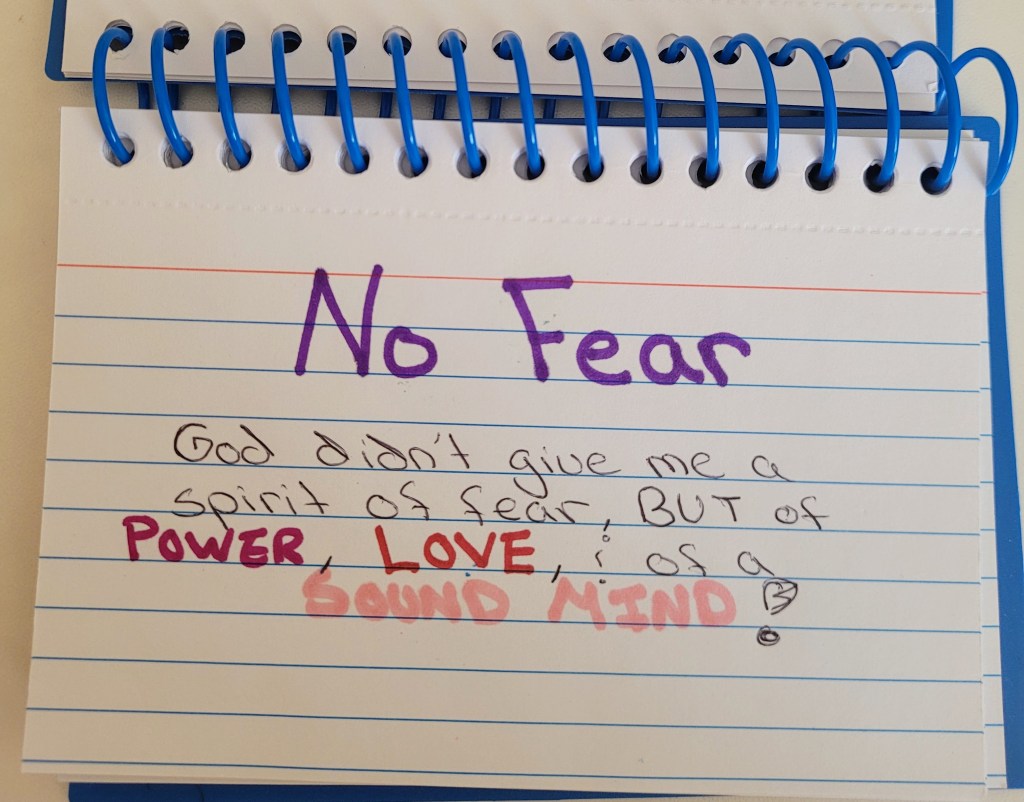 No Fear
God didn't give me a
spirit of fear, BUT of
POWER, LOVE, & of a
SOUND MIND!